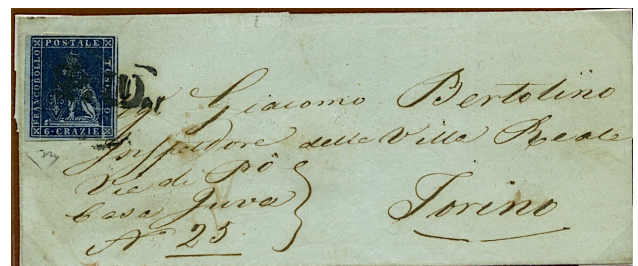 FRANCOBOLLO POSTALE TOSCANO
6 · CRAZIE
Sig. Giacomo Bertolino
Inspettore della Villa Reale
Via di Pô
Casa Juva
N° 25
Torino